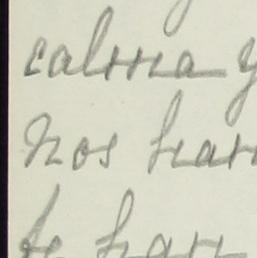 calma y
Nos han
te han